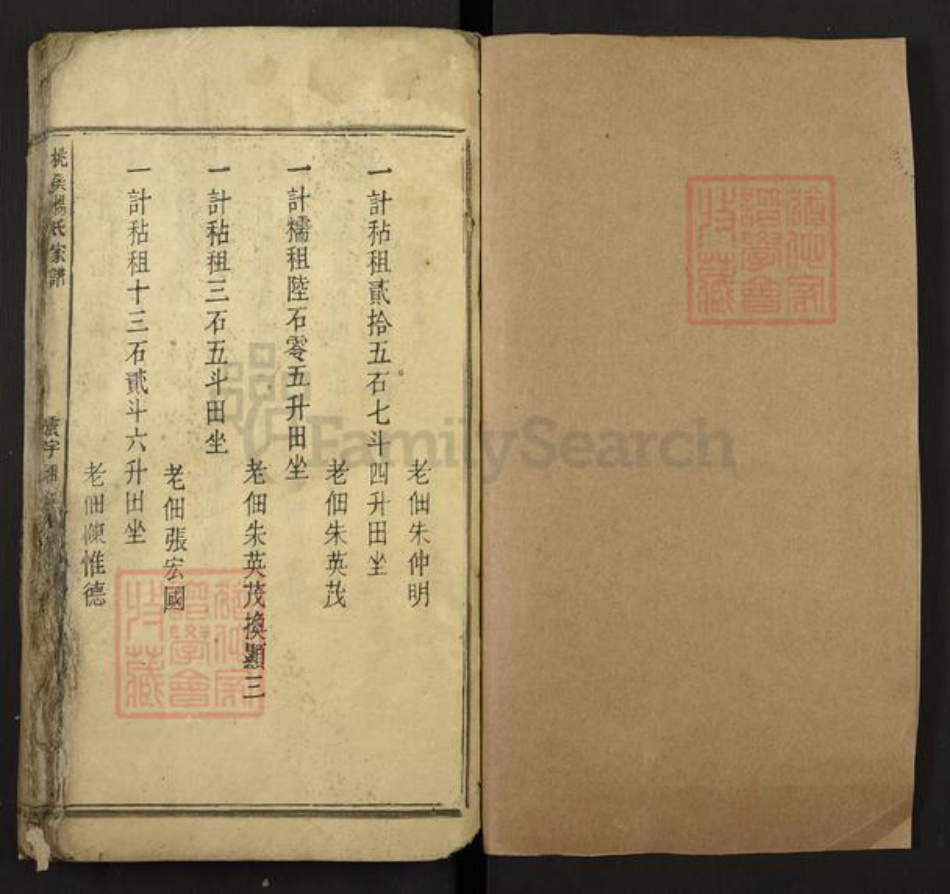 老佃朱仲明
一計秥租貳拾五石七斗四升田坐
老佃朱英茂
一計糯租陸石零五升田坐
老佃朱英茂換顯三
一計秥租三石五斗田坐
老佃張宏國
一計秥租十三石貳斗六升田坐
老佃陳惟德
楊氏家譜
FamilySearch